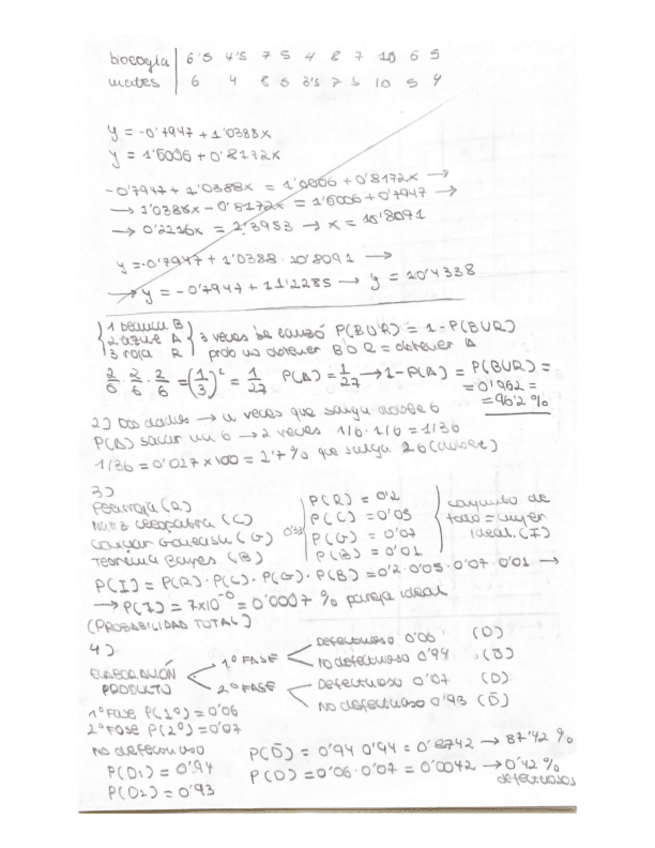 biología 6'5 4'5 7 5 4 8 7 10 6 5
mates 6 4 8 5 3'5 7 5 10 5 4
y = -0'7947 + 1'0388x
y = 1'6006 + 0'8172x
-0'7947 + 1'0388x = 1'6006 + 0'8172x →
→ 1'0388x - 0'8172x = 1'6006 + 0'7947 →
→ 0'2216x = 2'3953 → x = 10'8091
y = -0'7947 + 1'0388 · 10'8091 →
→ y = -0'7947 + 11'2285 → y = 10'4338
1 blanca B
2 azul A
3 roja R
3 veces se lanzó P(BUR) = 1 - P(BUR)
prob no obtener B o R = obtener A
2/6 · 2/6 · 2/6 = (1/3) = 1/27 P(A) = 1/27 → 1 - P(A) = P(BUR) =
= 0'962 =
= 96'2 %
2) Dos dados → veces que salga doble 6
P(A) sacar un 6 → 2 veces 1/6 · 1/6 = 1/36
1/36 = 0'027 x 100 = 2'7 % que salga 2 6 (doble)
3)
Pelirroja (R)
(C)
(G) 0'33
Teorema Bayes (B)
P(R) = 0'2
P(C) = 0'05
P(G) = 0'07
P(B) = 0'01
conjunto de
todo = mujer
ideal. (I)
P(I) = P(R) · P(C) · P(G) · P(B) = 0'2 · 0'05 · 0'07 · 0'01 →
→ P(I) = 7x10 = 0'0007 % pareja ideal
(PROBABILIDAD TOTAL)
4)
ELABORACIÓN
PRODUCTO
1º FASE
2º FASE
Defectuoso 0'06 (D)
no defectuoso 0'94 (D̄)
Defectuoso 0'07 (D)
No defectuoso 0'93 (D̄)
1º Fase P(1º) = 0'06
2º Fase P(2º) = 0'07
no defectuoso
P(D1) = 0'94
P(D2) = 0'93
P(D̄) = 0'94 · 0'94 = 0'8742 → 87'42 %
P(D) = 0'06 · 0'07 = 0'0042 → 0'42 %
defectuosos